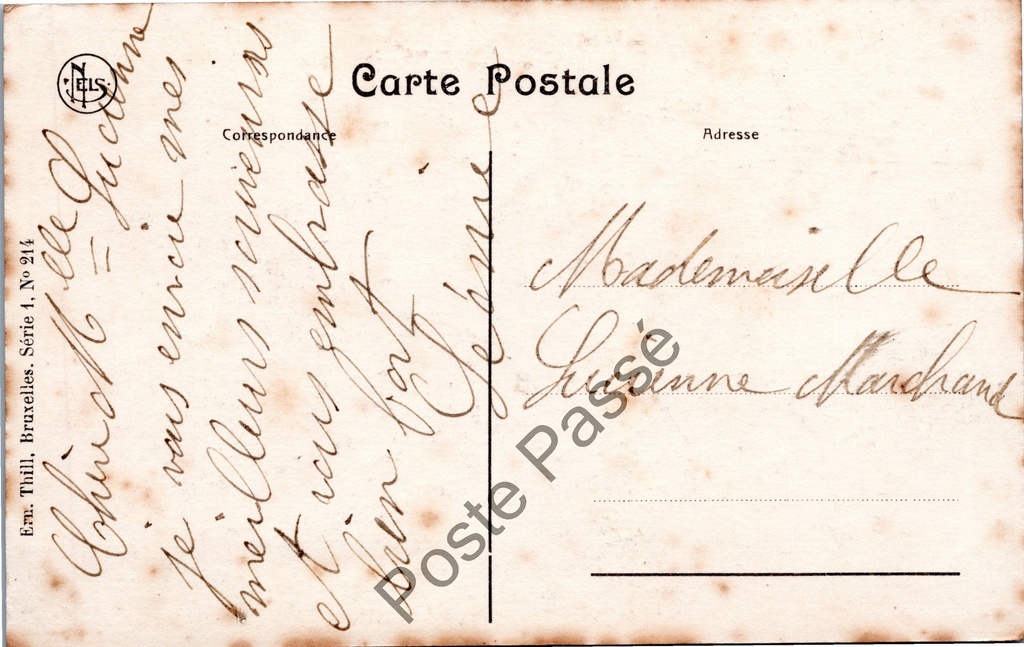 NELS
Carte Postale
Correspondance
Adresse
Ern. Thill, Bruxelles. Série 1, No 214
Chère Mlle Lucienne
Je vous envoie mes
meilleurs souvenirs
et vous embrasse
bien fort
Mademoiselle
Lucienne Marchand
Poste Passé